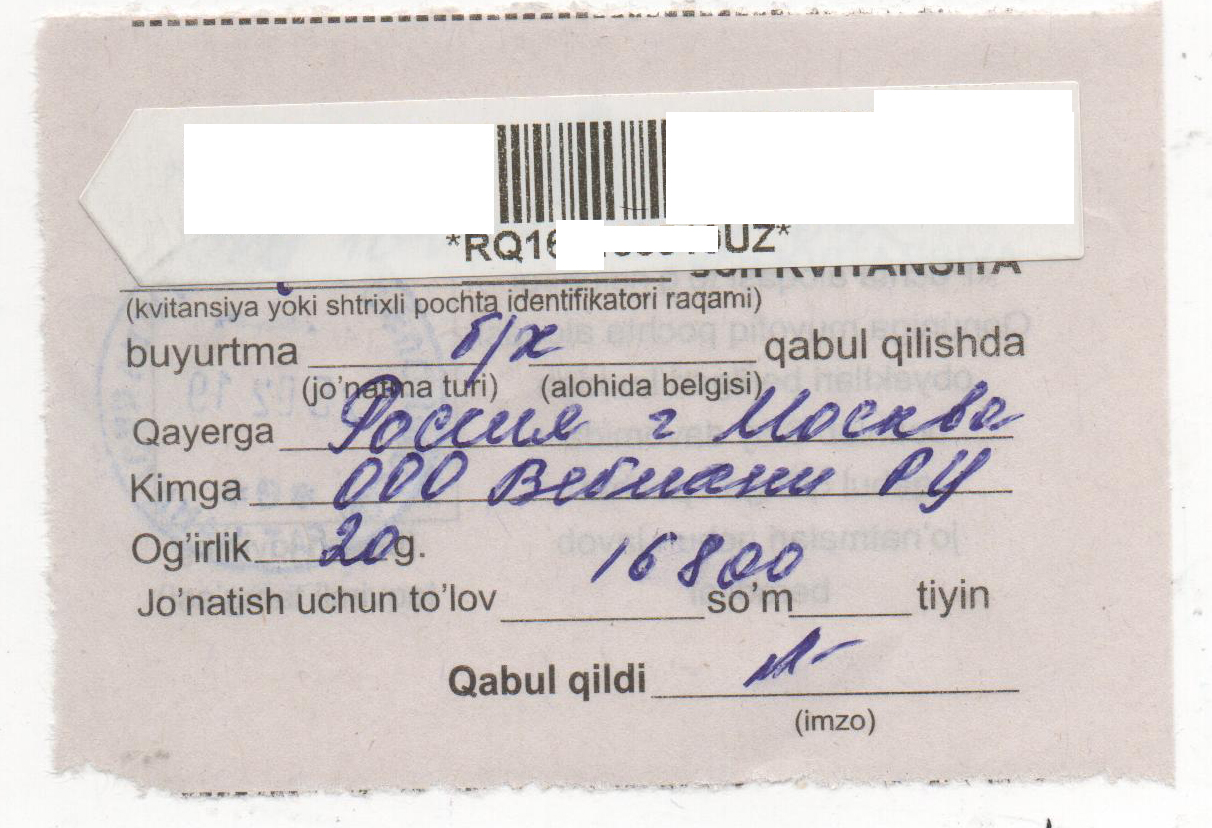 *RQ16 UZ*
KVITANSIYA
(kvitansiya yoki shtrixli pochta identifikatori raqami)
buyurtma б/х qabul qilishda
(jo'natma turi) (alohida belgisi)
Qayerga Россия г Москва
Kimga ООО Вебмани РУ
Og'irlik 20 g.
Jo'natish uchun to'lov 16800 so'm tiyin
Qabul qildi
(imzo)